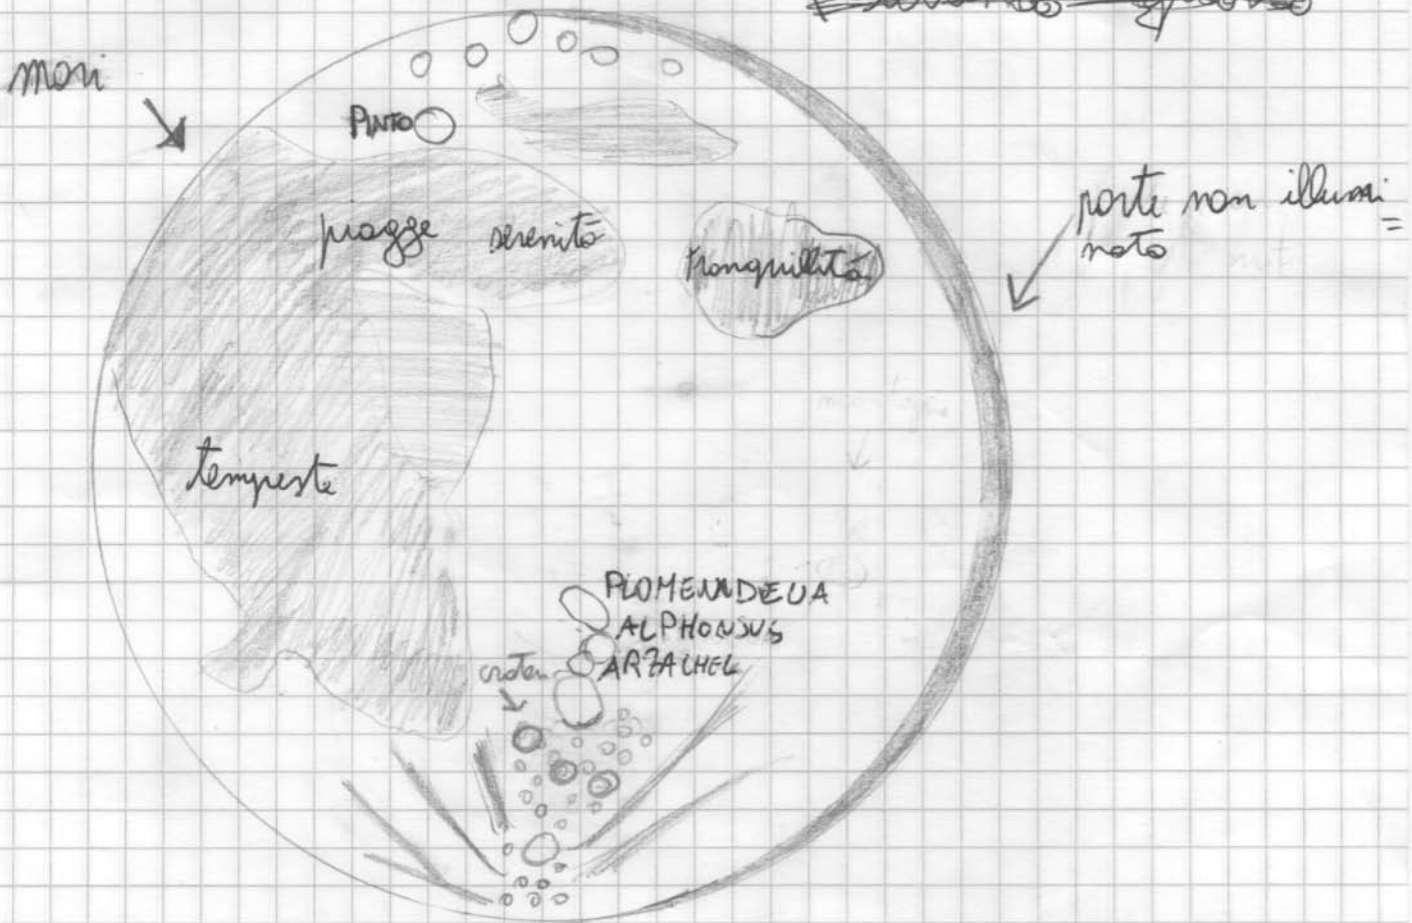 mari
PINTO
piogge serenità
tranquillità
parte non illumi=
nata
tempeste
ALPHONSUS
ARZACHEL
crateri